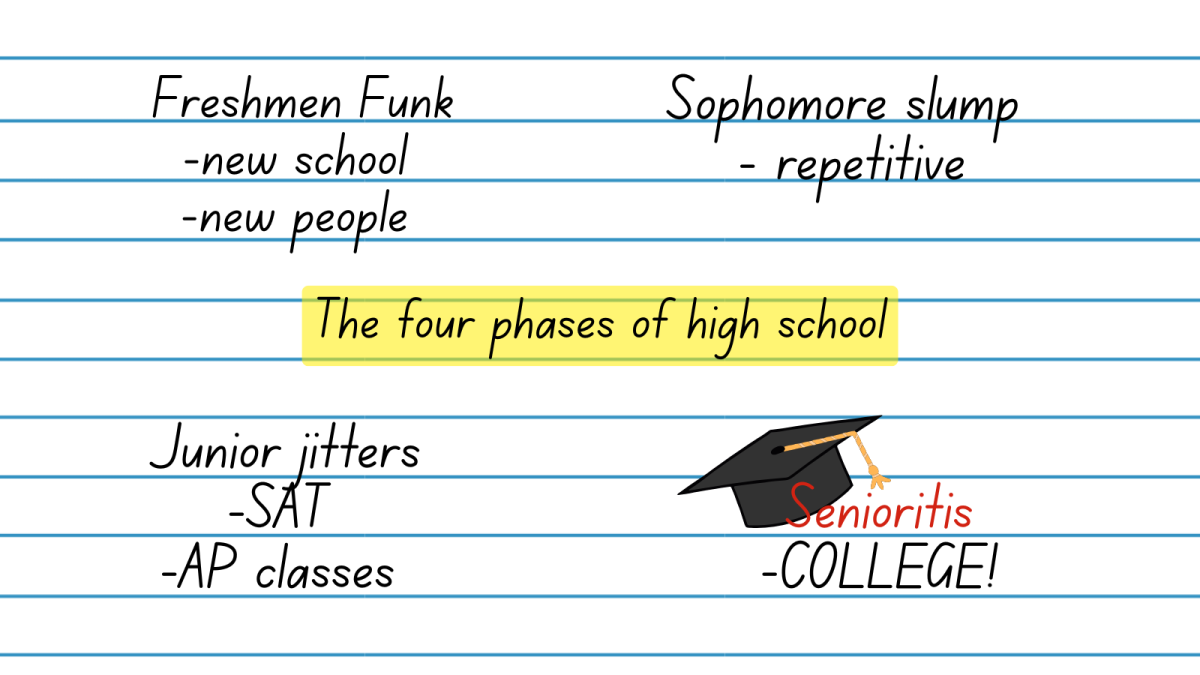 Freshmen Funk
-new school
-new people
Sophomore slump
- repetitive
The four phases of high school
Junior jitters
-SAT
-AP classes
Senioritis
-COLLEGE!